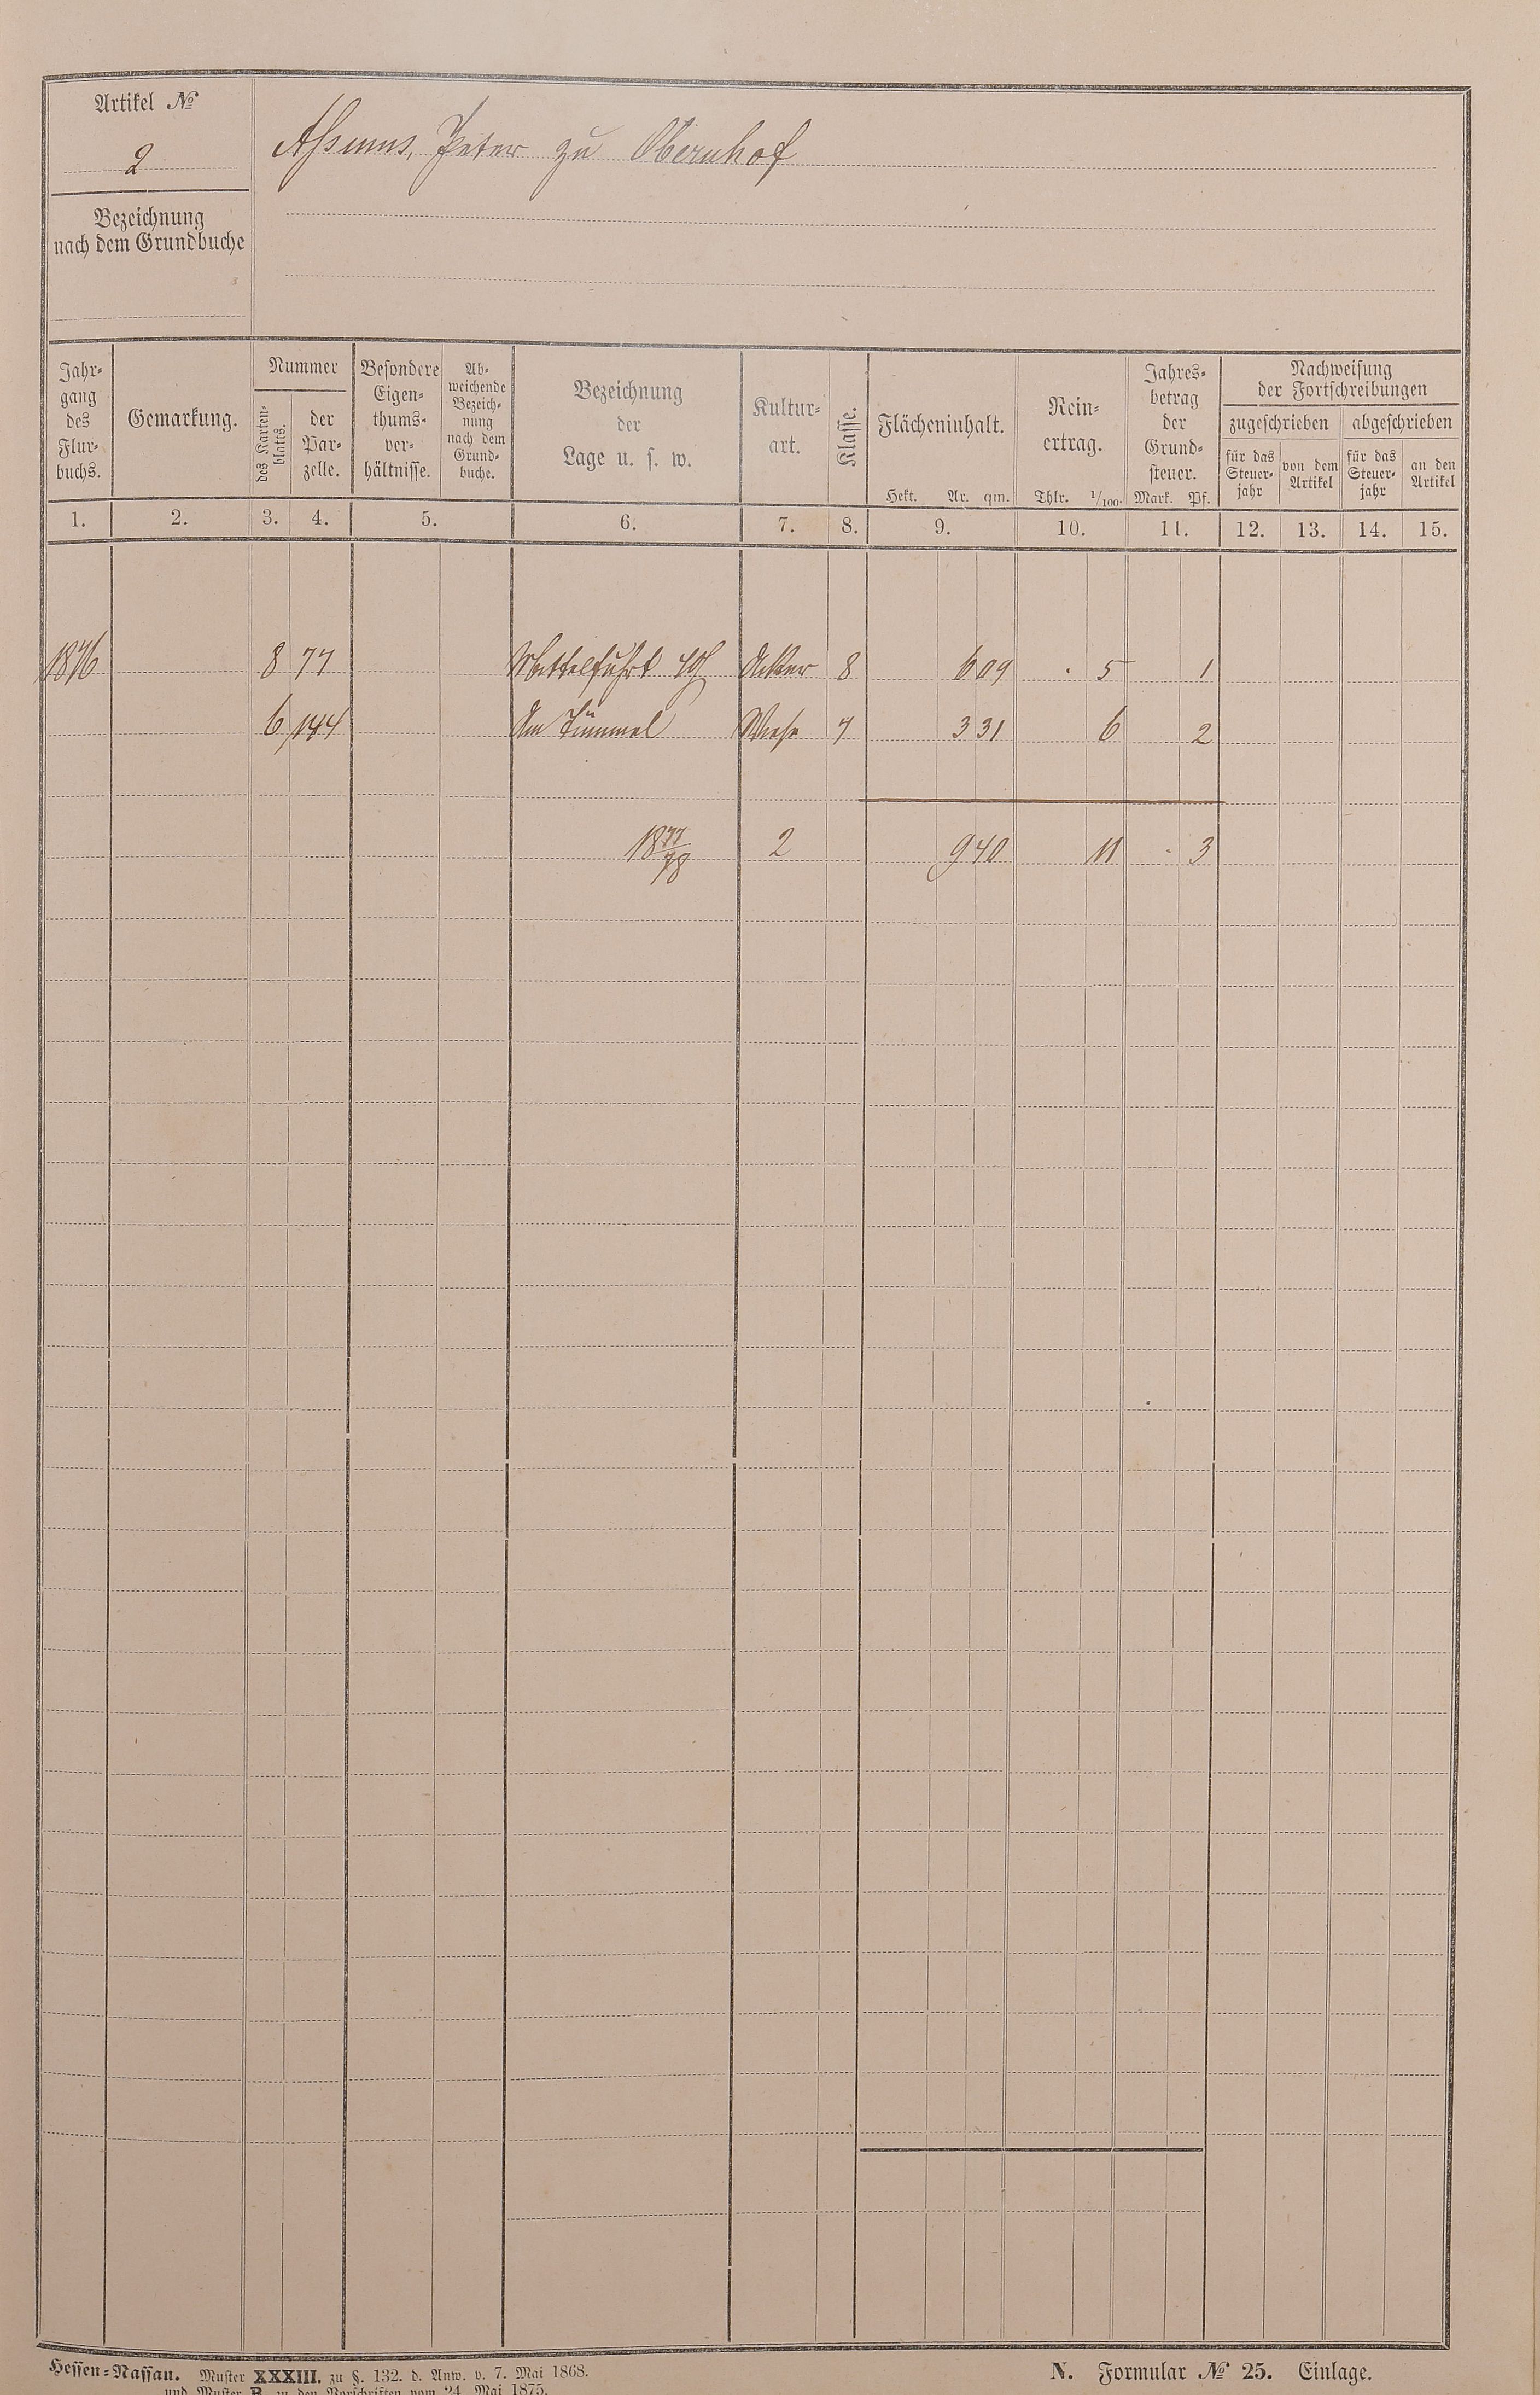 Artikel №
2
Assmus, Peter zu Obernhof
Bezeichnung
nach dem Grundbuche
Jahr-
gang
des
Flur-
buchs.
Gemarkung.
Nummer
des Karten-
blatts.
der
Par-
zelle.
Besondere
Eigen-
thums-
ver-
hältnisse.
Ab-
weichende
Bezeich-
nung
nach dem
Grund-
buche.
Bezeichnung
der
Lage u. s. w.
Kultur-
art.
Klasse.
Flächeninhalt.
Hekt. Ar. qm.
Rein-
ertrag.
Thlr. 1/100.
Jahres-
betrag
der
Grund-
steuer.
Mark. Pf.
Nachweisung
der Fortschreibungen
zugeschrieben abgeschrieben
für das
Steuer-
jahr
von dem
Artikel
für das
Steuer-
jahr
an den
Artikel
1. 2. 3. 4. 5. 6. 7. 8. 9. 10. 11. 12. 13. 14. 15.
1876 8 77 Mittelfuhrt Acker 8 6 09 . 5 1
6 144 Am Wiese 7 3 31 6 2
1877/78 2 9 40 11 . 3
Hessen-Nassau. Muster XXXIII. zu §. 132. d. Anw. v. 7. Mai 1868.
und Muster B. zu den Vorschriften vom 24. Mai 1875.
N. Formular № 25. Einlage.